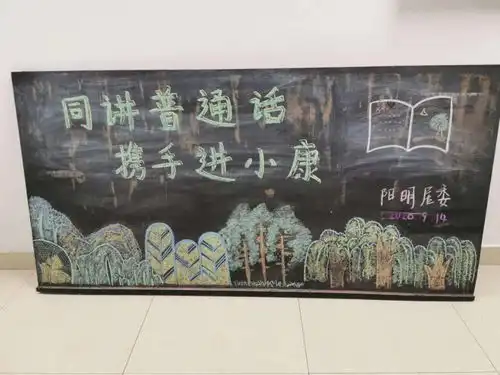 同讲普通话
携手进小康
阳明居委
2020.9.14